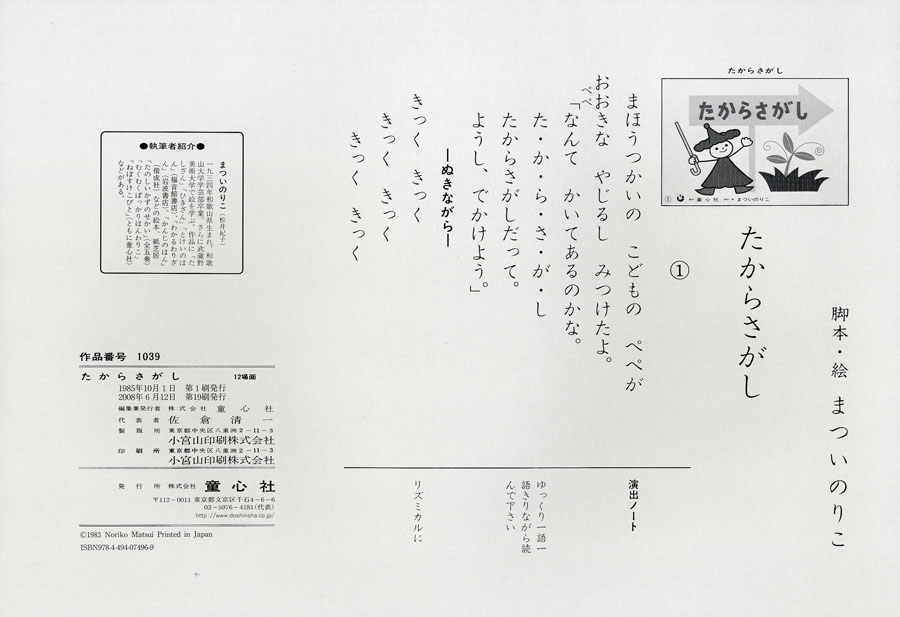 脚本・絵 まついのりこ
たからさがし
たからさがし
たからさがし
① 童心社 まついのりこ
①
まほうつかいの こどもの ぺぺが
おおきな やじるし みつけたよ。
ぺぺ
「なんて かいてあるのかな。
た・か・ら・さ・が・し
たからさがしだって。
ようし、でかけよう。」
―ぬきながら―
きっく きっく
きっく きっく
きっく きっく
演出ノート
ゆっくり一語一
語きりながら読
んで下さい
リズミカルに
●執筆者紹介●
まついのりこ（松井紀子）
一九三四年和歌山県生まれ。和歌
山大学学芸部卒業。さらに武蔵野
美術大学で絵を学ぶ。作品に「た
しざん」「ひきざん」「とけいのほ
ん」（福音館書店）、「わかるわりざ
ん」（岩波書店）、「かんじのほん」
（偕成社）などの絵本、紙芝居
「たのしいかずのせかい」（全五巻）
「むくむくぽっかりほんわりこ」
「ねぼすけこびと」（ともに童心社）
などがある。
作品番号 1039
たからさがし 12場面
1985年10月1日 第1刷発行
2008年6月12日 第19刷発行
編集兼発行者 株式会社 童心社
代表者 佐倉清一
製版所 東京都中央区八重洲2－11－3
小宮山印刷株式会社
印刷所 東京都中央区八重洲2－11－3
小宮山印刷株式会社
発行所 株式会社 童心社
〒112－0011 東京都文京区千石4－6－6
03－5976－4181(代表)
http://www.doshinsha.co.jp/
©1983 Noriko Matsui Printed in Japan
ISBN978-4-494-07496-9